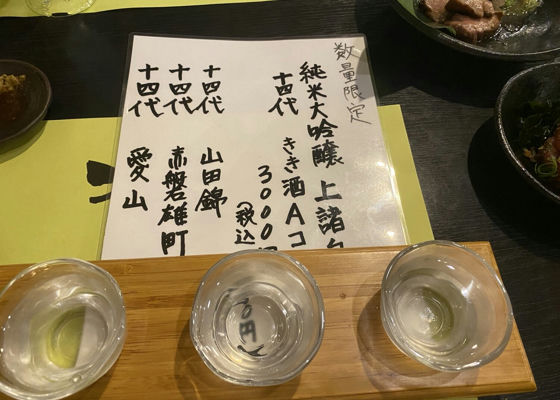 数量限定
純米大吟醸 上諸
十四代 きき酒Aコ
3000円
(税込
十四代 山田錦
十四代 赤磐雄町
十四代 愛山